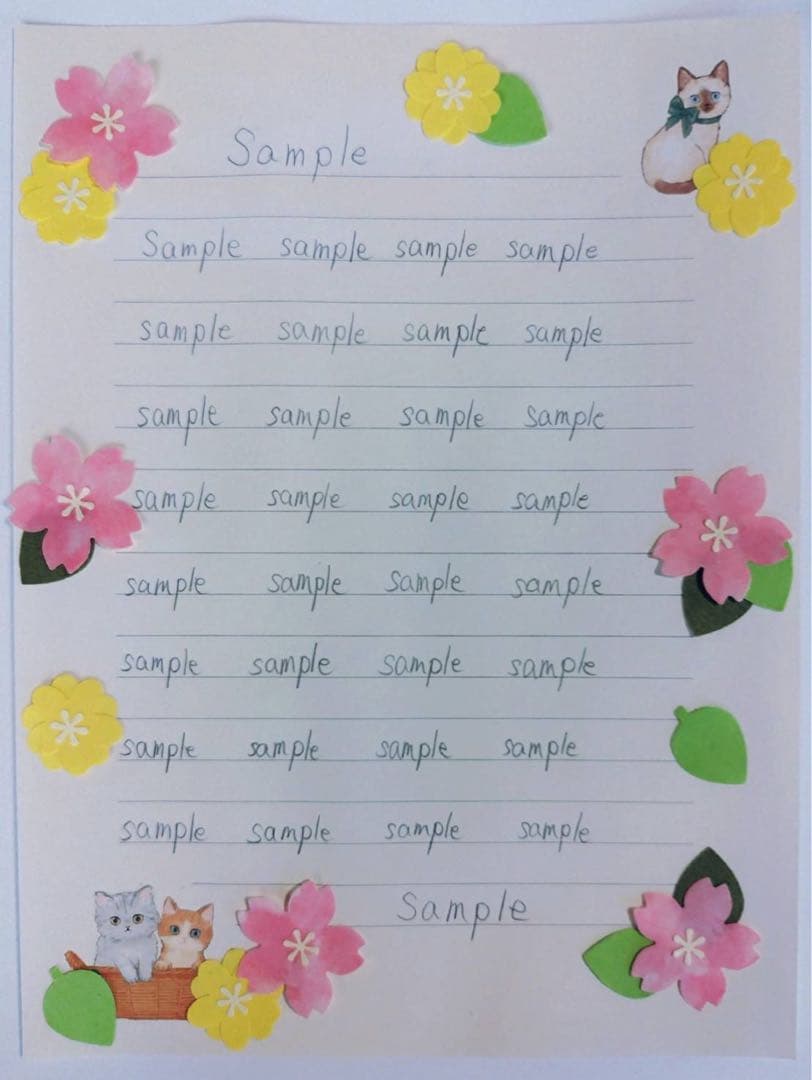 Sample
Sample sample sample sample
sample sample sample sample
sample sample sample sample
sample sample sample sample
sample sample sample sample
sample sample sample sample
sample sample sample sample
sample sample sample sample
Sample